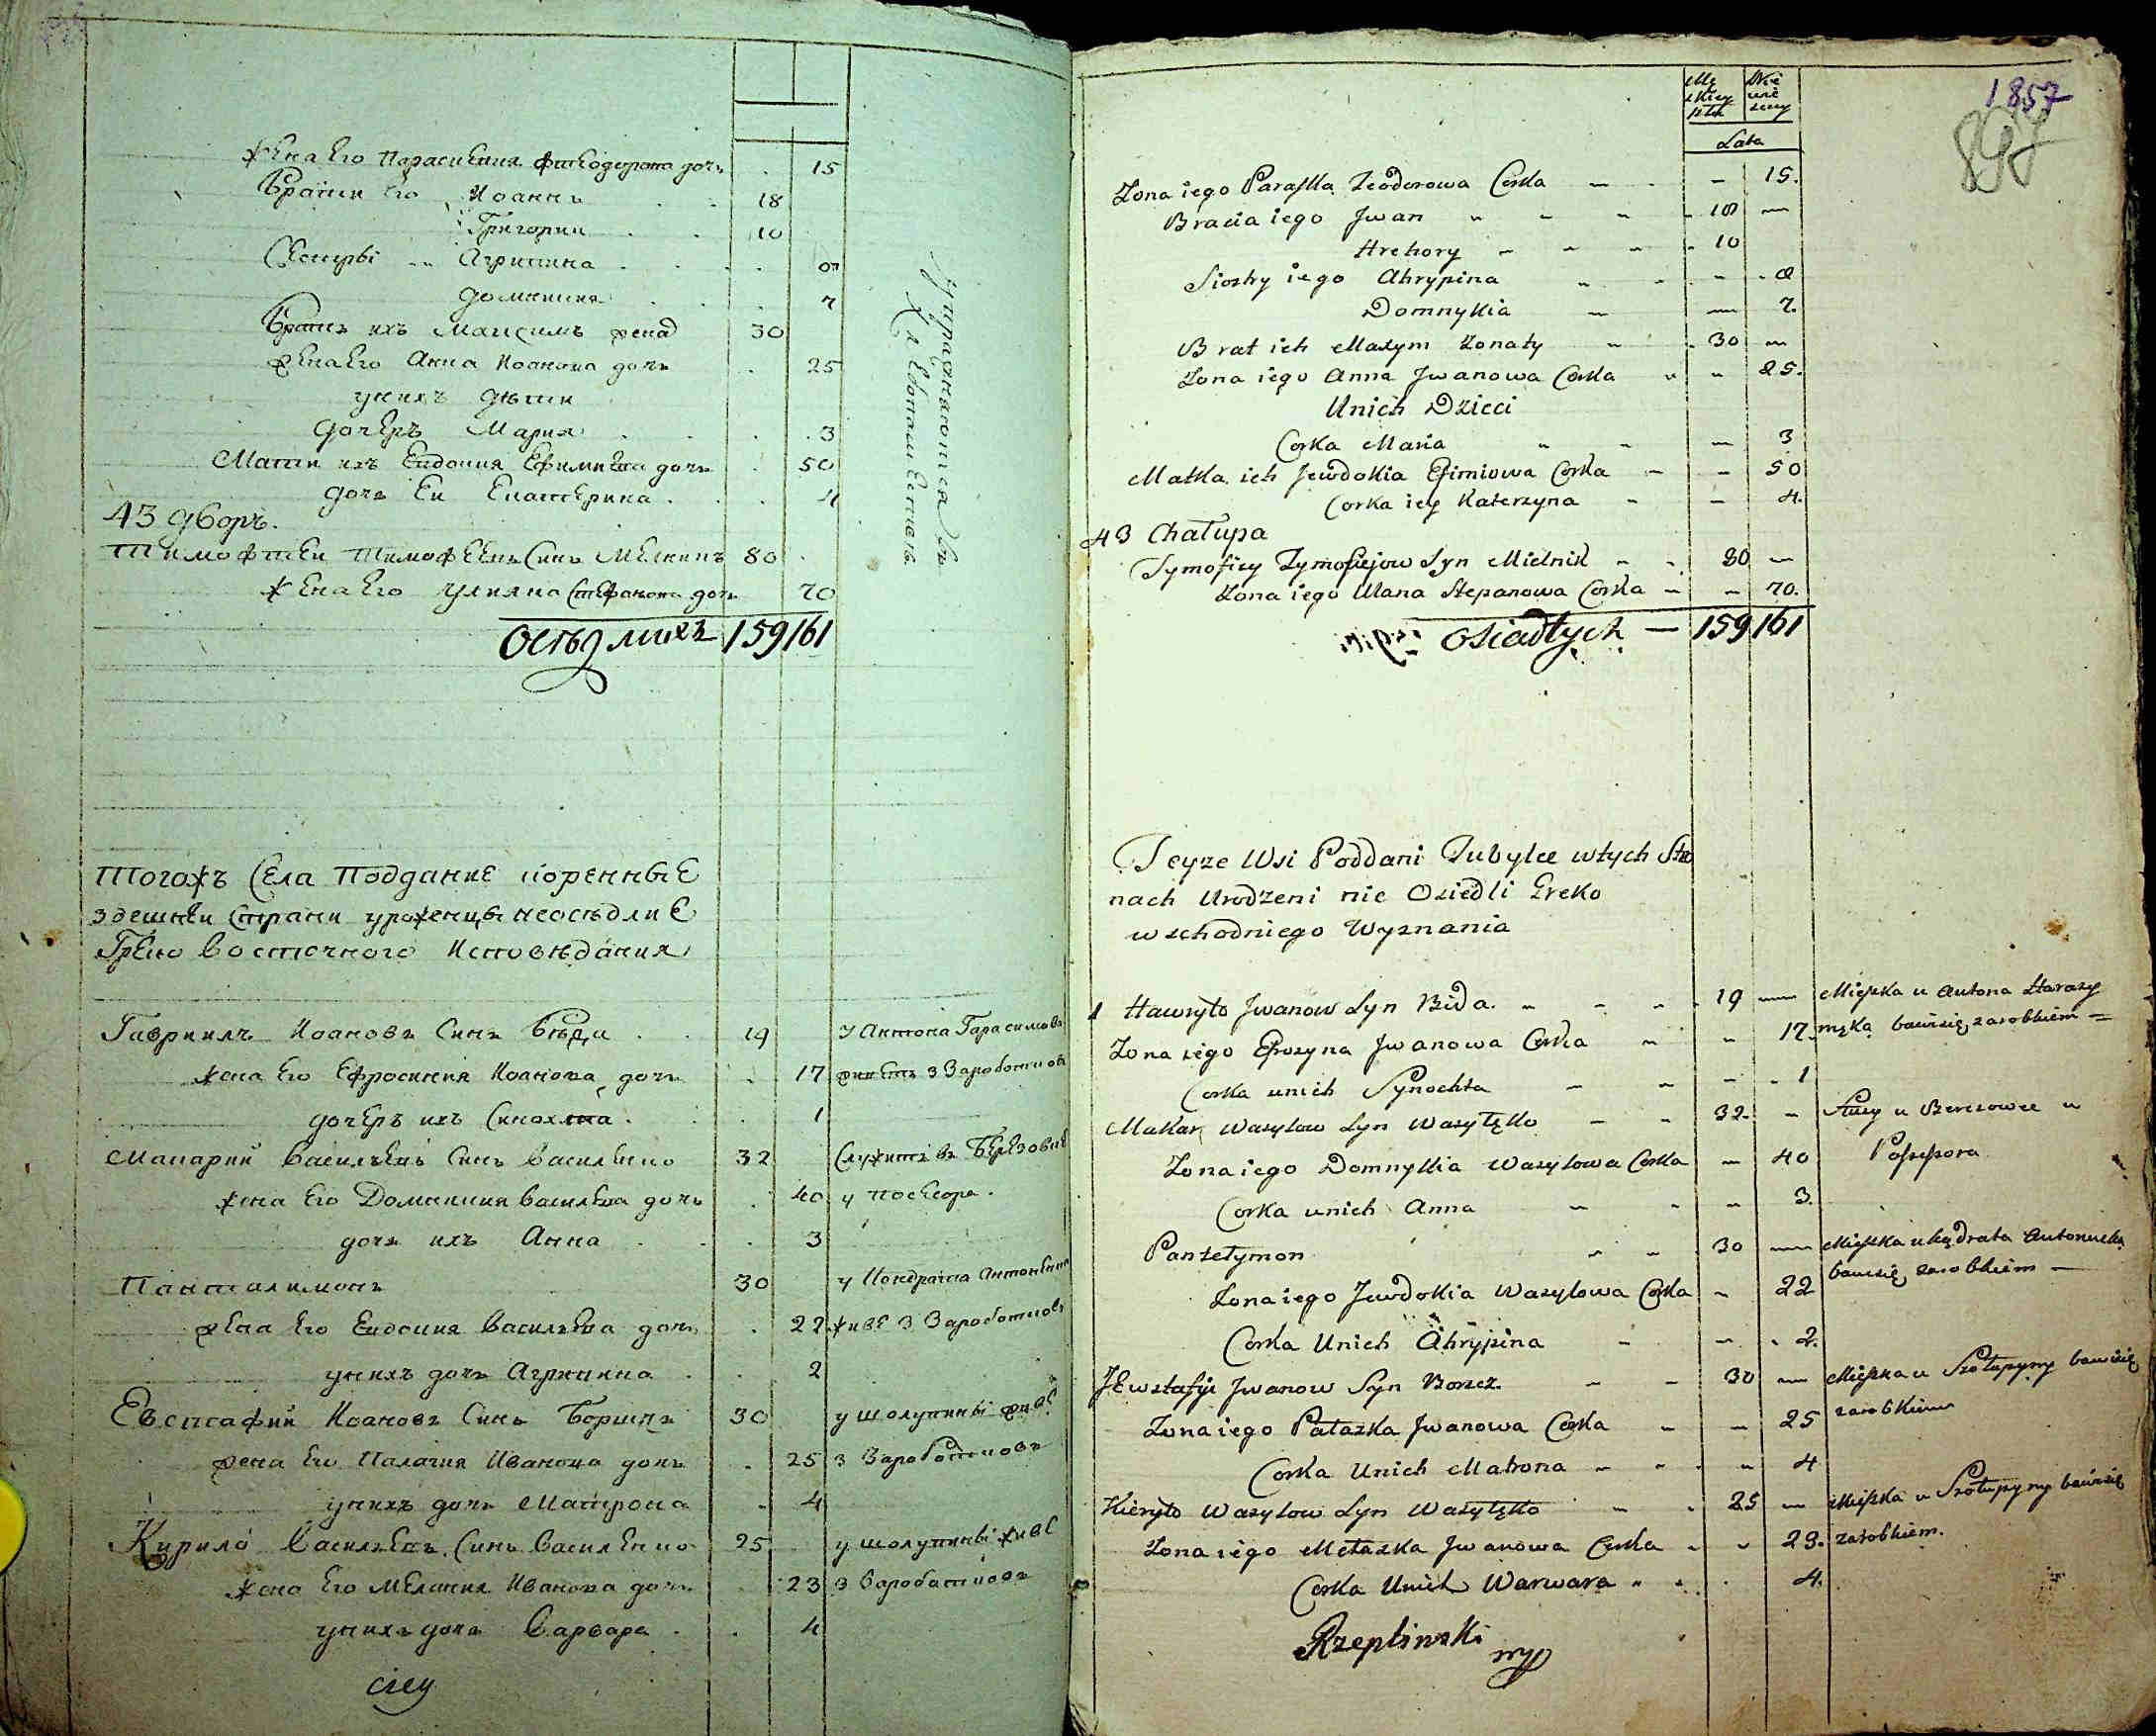 жена его Параскевия Фтеодорова дочь . 15
Братя его Иоаннъ 18
Григорий 10
Сестры Агрипина
Домникия 7
Братъ ихъ Максимъ женат 30
жена его Анна Иоанова дочь . 25
у нихъ дети
дочеръ Мария . 3
Мати ихъ Евдокия Ефимиева дочь . 50
дочь Еи Екатерина . 4
43 дворъ.
Тимофтей Тимофеевъ Синъ Мелникъ 80
жена его Улияна Стефанова дочь 70
Оседлихъ 159 161
Тогожъ Села Поддание коренные
здешнеи Страни уроженцы неоседлие
Греко восточного Исповедания
Гавриилъ Иоановъ Синъ Беда . 19 у Антона Гарасимова
жена его Ефросиния Иоанова дочь . 17 живетъ з Заработковъ
дочеръ ихъ Синохта . 1
Макарий Василъевъ Синъ Василенко 32 Служитъ въ Березовце
жена его Домникия Василева дочь . 40 у посесора.
дочь ихъ Анна . 3
Пантилимонъ 30 у Кондрата Антонюка
жена его Евдокия Василъева дочь . 22 живе з Заработковъ
у нихъ дочь Агрипина . 2
Евстафий Иоановъ Синъ Борщъ 30 у Шолупины живе
жена его Палагия Иванова дочь . 25 з Заработковъ
у нихъ дочь Матрона . 4
Кирило Василъевъ Синъ Василенко 25 у шолупины живе
жена его Мелания Иванова дочь . 23 з Заработковъ
у нихъ дочь Варвара . 4
1857
897
Męzkiey płci
Lata
Zona iego Paraska Teodorowa Corka — 15.
Bracia iego Jwan 18 —
Hrehory 10
Siostry iego Ahrypina 8
Domnykia — 7.
Brat ich Maxym Zonaty 30 —
Zona iego Anna Jwanowa Corka 25.
Unich Dzieci
Corka Maria — 3
Matka ich Jewdokia Efimiowa Corka — 50
Corka iey Katerzyna — 4.
43 Chałupa
Tymofiey Tymofiejow Syn Mielnik 80 —
Zona iego Ulana Stepanowa Corka — 70.
Osiadłych — 159 161
Teyze Wsi Poddani Tubylce wtych Stro
nach Urodzeni nie Osiedli Greko
wschodniego Wyznania
1 Hawryło Jwanow Syn Bida. 19 — Mięszka u Antona Harasy
Zona iego Eprozyna Jwanowa Corka 17. mzka bawisię zarobkiem —
Corka unich Synochta 1
Makar Wasylow Syn Wasyłęko 32. — Służy u Berezowce u
Zona iego Domnykia Wasylowa Corka — 40 Possessora
Corka unich Anna 3.
Pantełymon 30 — Mięszka u Kądrata Antoniuka
Zona iego Jewdokia Wasylowa Corka 22 bawisię zarobkiem —
Corka Unich Ahrypina 2.
JEwstafyi Jwanow Syn Borszcz. 30 — Mięszka u Szołupyny bawisię
Zona iego Pałazka Jwanowa Corka — 25 zarobkiem
Corka Unich Matrona 4
Kieryło Wasylow Syn Wasyłęko 25 — Mięszka u Szołupyny bawisię
Zona iego Mełaszka Jwanowa Corka 23. zarobkiem.
Corka Unich Warwara 4.
Rzeplinski
mp